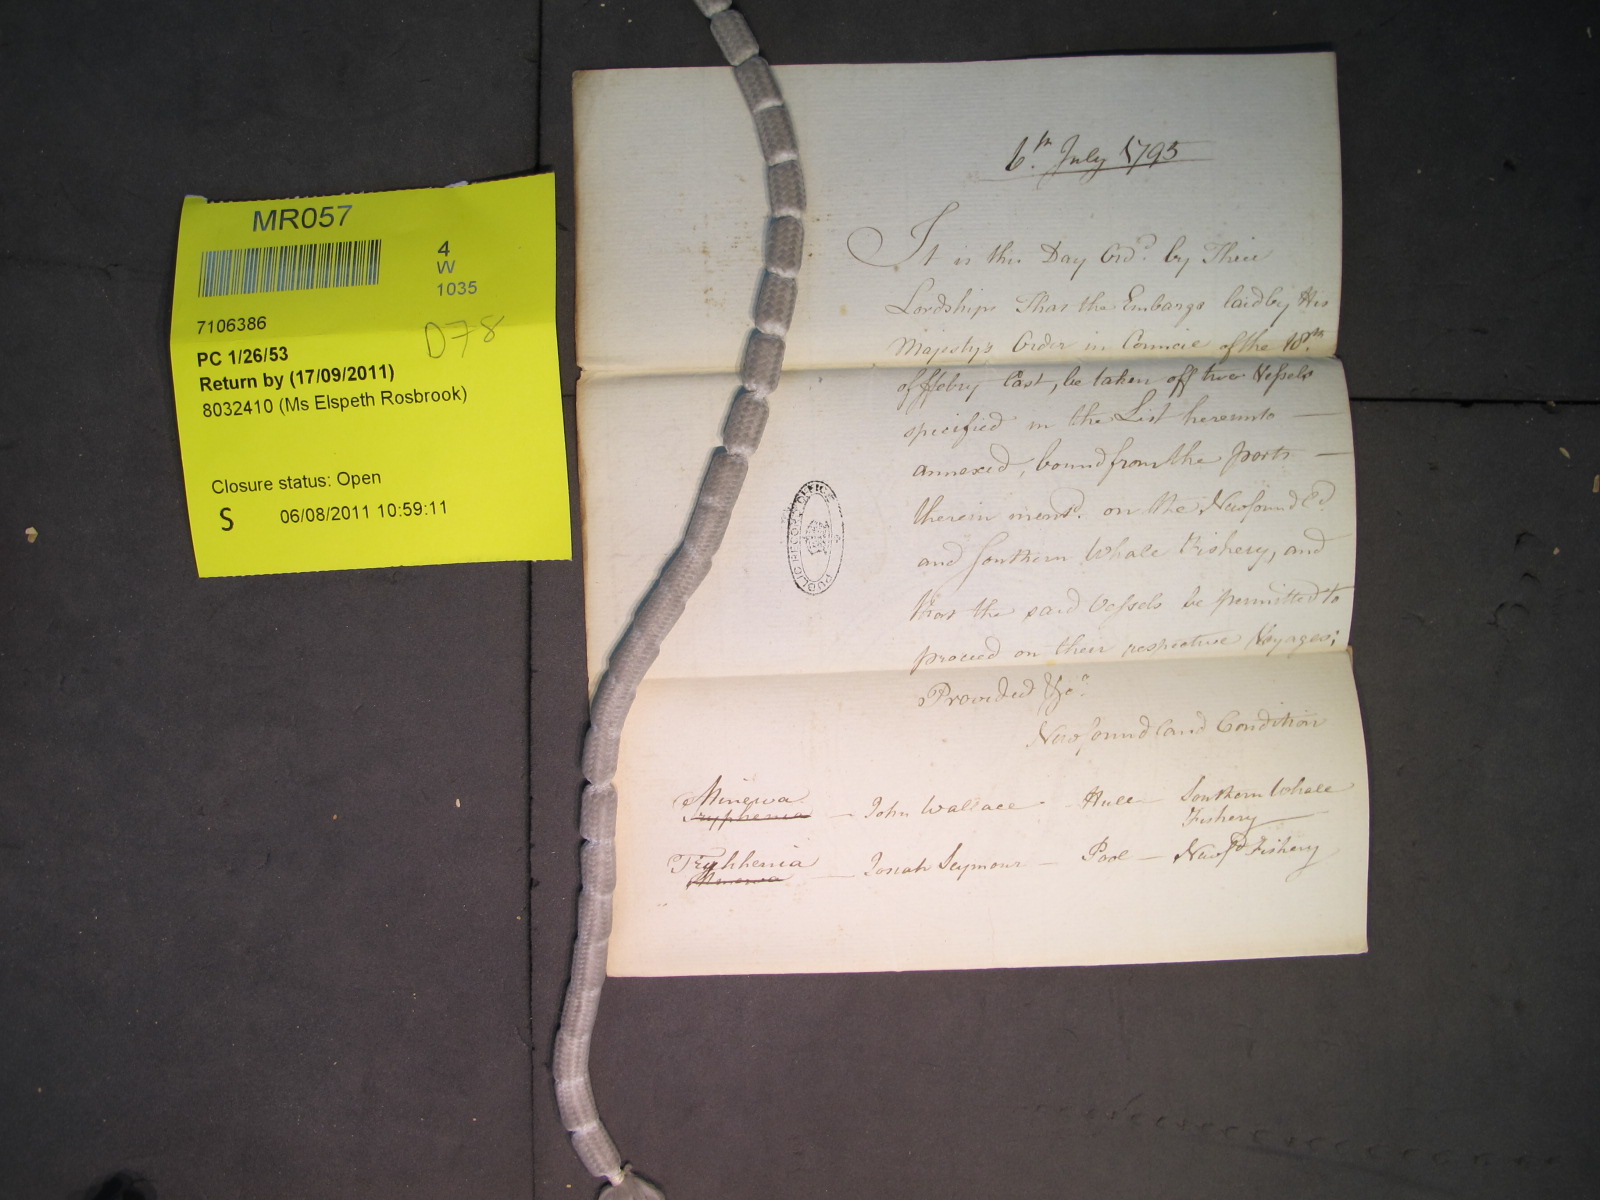 MR057
4
W
1035
7106386
D78
PC 1/26/53
Return by (17/09/2011)
8032410 (Ms Elspeth Rosbrook)
Closure status: Open
S 06/08/2011 10:59:11
6.th July 1795
It is this Day Ord.d by Their
Lordships That the Embargo laid by His
Majesty's Order in Council of the 18.th
of ffebry last, be taken off two Vessels
specified in the List hereunto —
annexed, bound from the ports —
therein ment.d on the Newfound L.d
and Southern Whale Fishery, and
that the said Vessels be permitted to
proceed on their respective Voyages;
Provided &c.a
Newfoundland Condition
Minerva
Tryphenia — John Wallace - Hull - Southern Whale
Fishery
Tryphenia
Minerva — Jonah Seymour — Pool — Newf.d Fishery
PUBLIC RECORD OFFICE